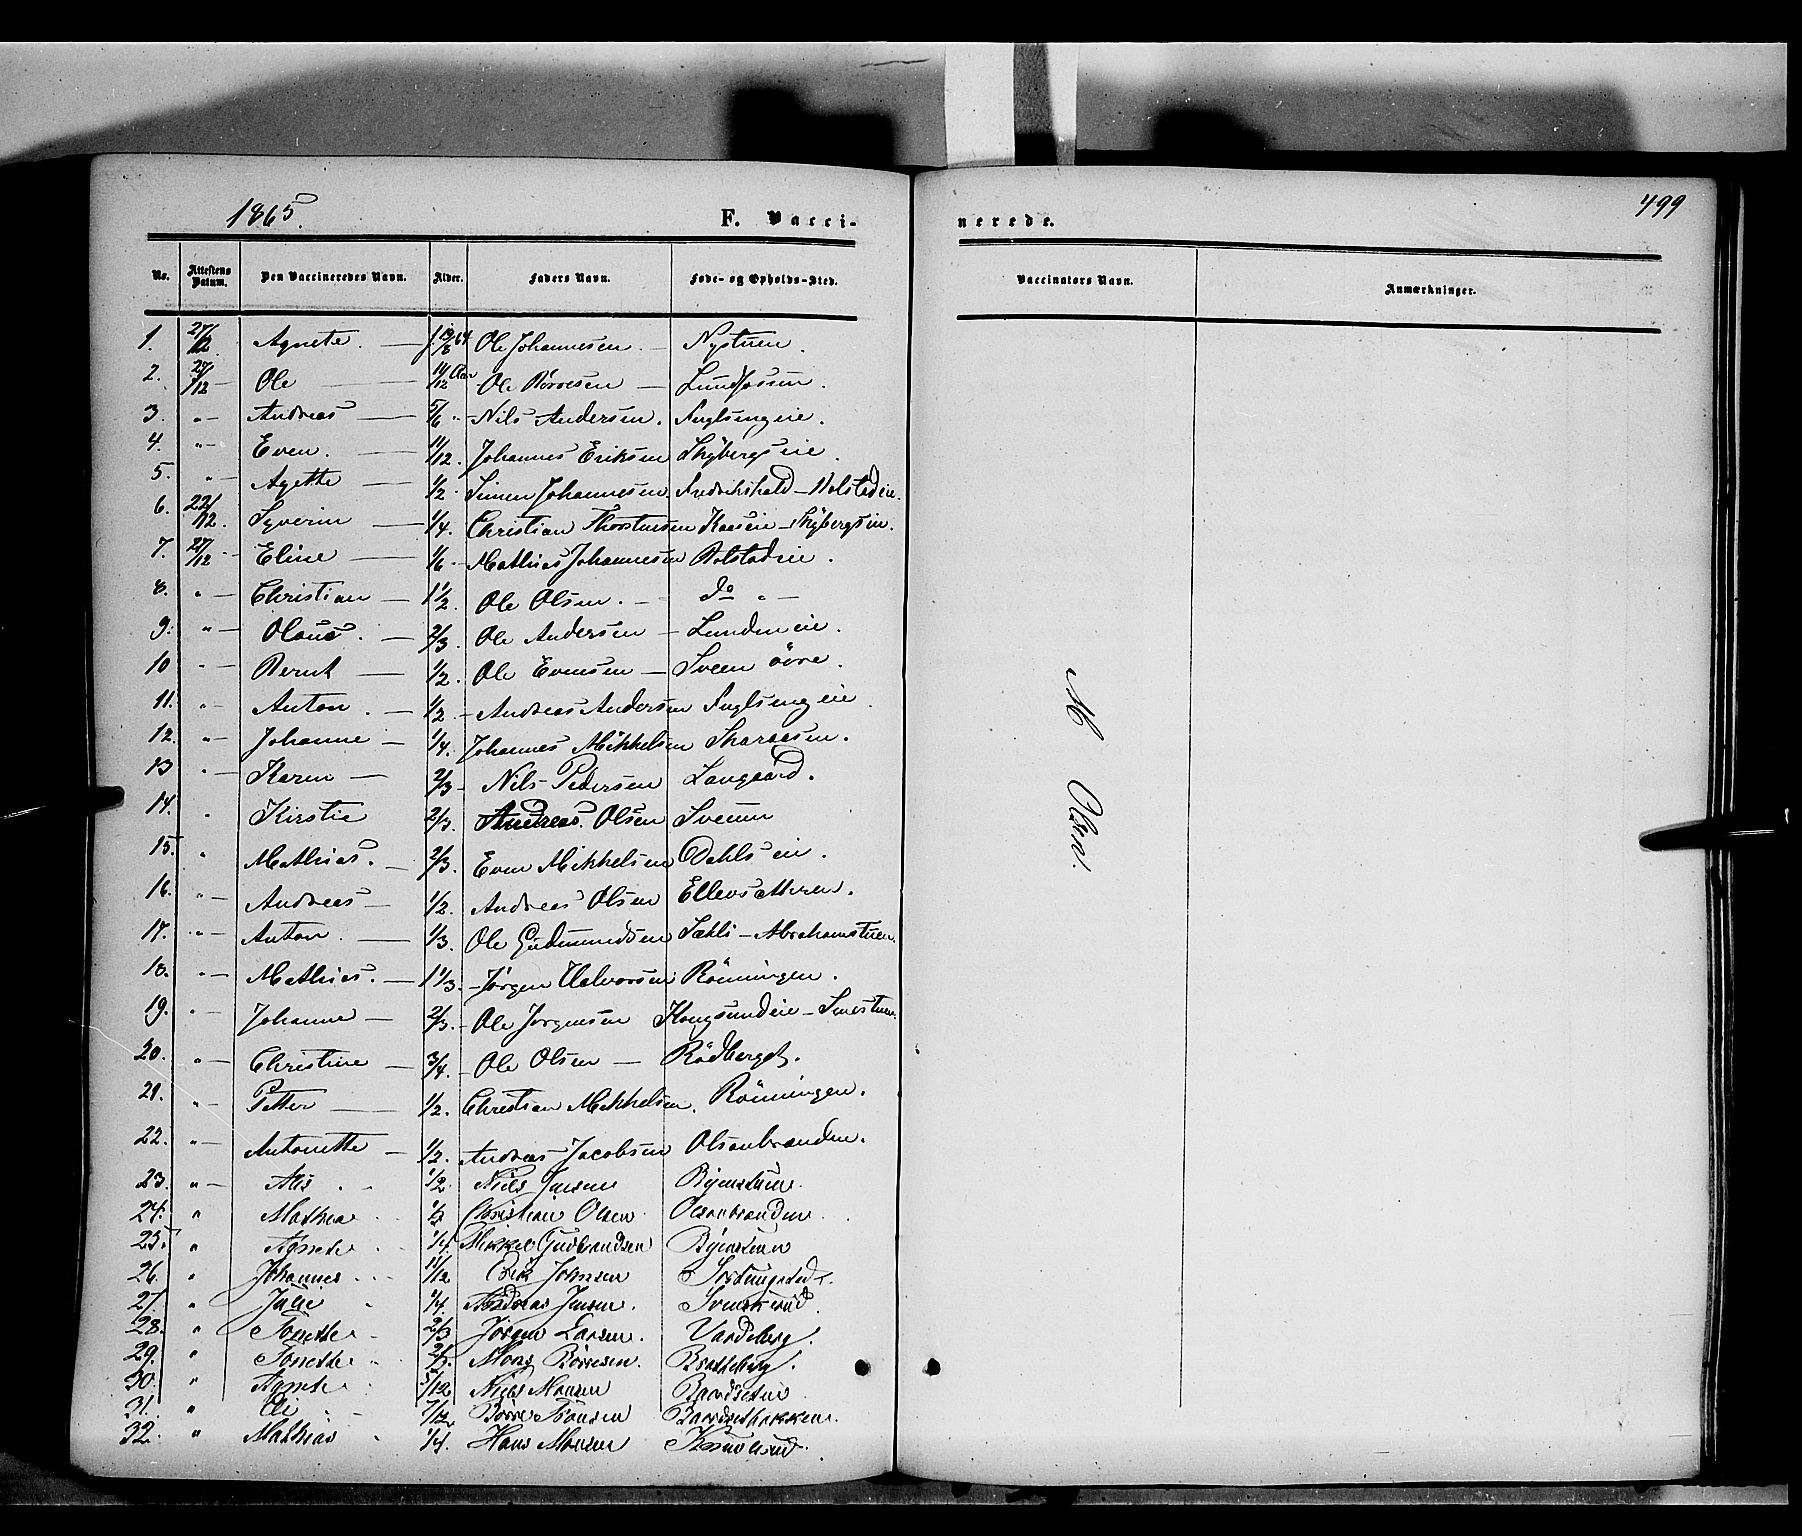 1865. F. Vacci-
nerede. 499
No. Attestens Datum. Den Vaccineredes Navn. Alder. Faders Navn. Føde- og Opholds-Sted.
Vaccinators Navn. Anmærkninger.
1. 27/12. Agnete. — f. 13/8 64 Ole Johannesen — Nystuen.
2. 27/12 — Ole — 11/12 Aar Ole Børresen — Lundjosuen.
3. " — Andreas — 5/6 " Nils Andersen. Fuglsangeie.
4. " — Even. — 11/12. Johannes Eriksen Skybergseie.
5. " — Agethe — 1/2. Simen Johannesen Fredrikshald — Holstadeie.
6. 22/12. — Syverin — 1/4. Christian Thorstensen Kaaseie — Skybergseie.
7. 27/12 — Eline — 1/6 — Mathias Johannesen Holstadeie.
8. " — Christian — 1 1/2. Ole Olsen. — do " —
9. " — Olaus. — 2/3. Ole Andersen — Lundeneie.
10 " — Bernt — 1/2. Ole Evensen — Sveen øvre.
11. " — Anton. — 1/2. — Andreas Andersen Fuglsangeie.
12. " — Johanne — 1/4. Johannes Mikkelsen Skaraasen.
13 " — Karen — 2/3 — Nils Pedersen Langaard.
14. " Kirstie 2/3. Andreas Olsen Sveum
15. " Mathias. — 2/3. Even Mikkelsen Dahlseie.
16. " — Andreas — 1/2. Andreas Olsen Ellevsætteren.
17. " — Anton. — 1/3. Ole Gudmundsen Sæhli — Abrahamstuen.
18. " — Mathias. — 1 1/3. — Jørgen Halvorsen Rönningen.
19. " — Johanne — 2/3. — Ole Jørgensen Kongsundeie — Smestuen.
20. " — Christine — 3/4. — Ole Olsen — Rödberget.
21. " — Petter — 1/2. Christian Mikkelsen. Rönningen.
22. " — Antonette — 1/2. Andreas Jacobsen Olsenbraaden.
23. " — 1/2. Niels Jensen Bjenstuen.
24. " Mathea 1/2 Christian Olsen. Olsenbraaden.
25. " Agnethe 1/4. Mikkel Gudbrandsen Bjenstuen
26. " Johannes 11/12 Erik Johnsen
27. " Julie " 1/4. Andreas Jensen.
28. " Tonethe 2/3 Jørgen Larsen. Vardeberg.
29. " Tonethe " 2/3. Mons Börresen. Bratteberg.
30. " Agnethe 5/12 Niels Monsen Baardsetuen
31. " Eli — 7/12 Börre Tronsen Baardsethakken.
32. " Mathias " 1/4. Hans Monsen
M Olsen.